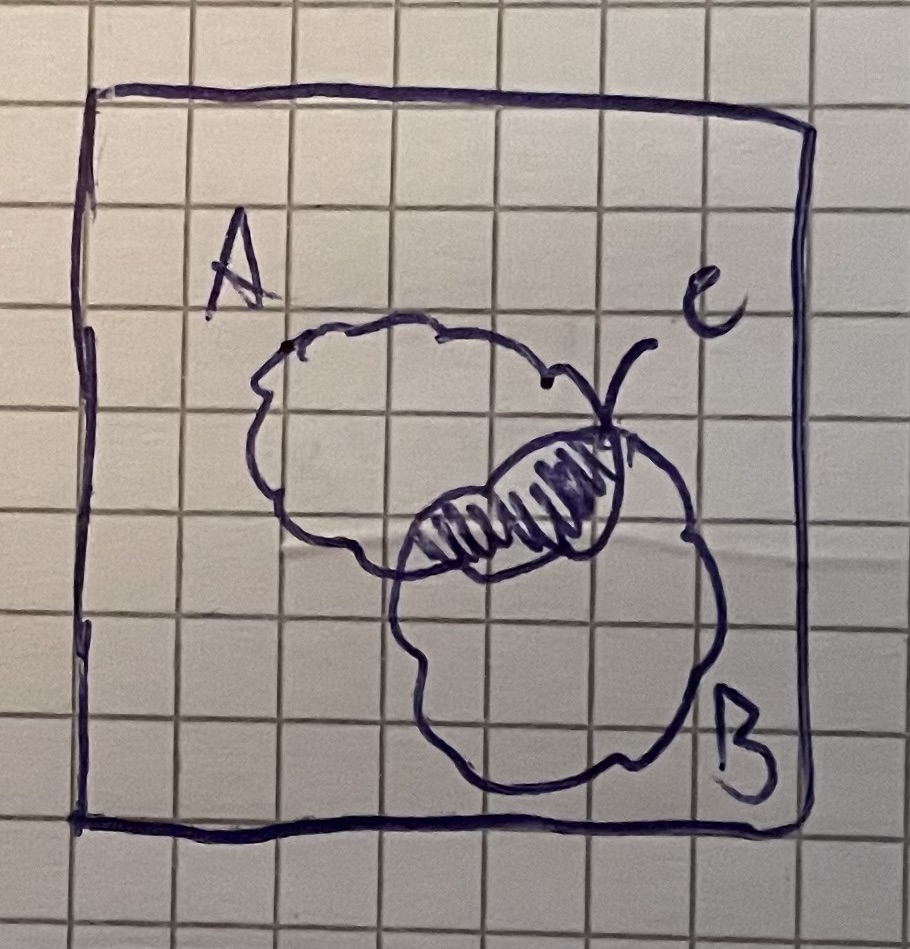 A
C
B